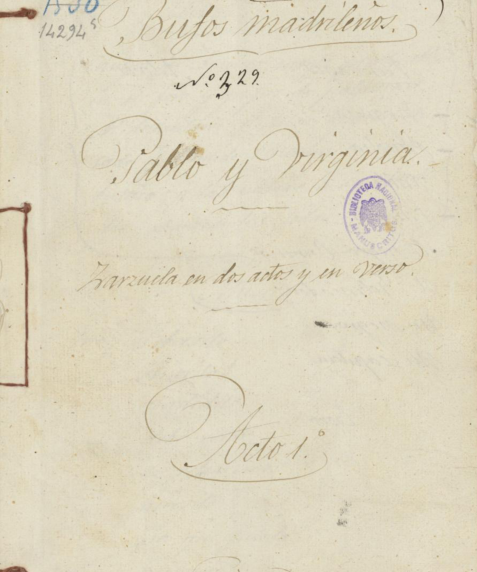 14294⁵
Bufos madrileños.
Nº 329.
Pablo y Virginia.
BIBLIOTECA NACIONAL
MANUSCRITOS
Zarzuela en dos actos y en verso.
Acto 1.º